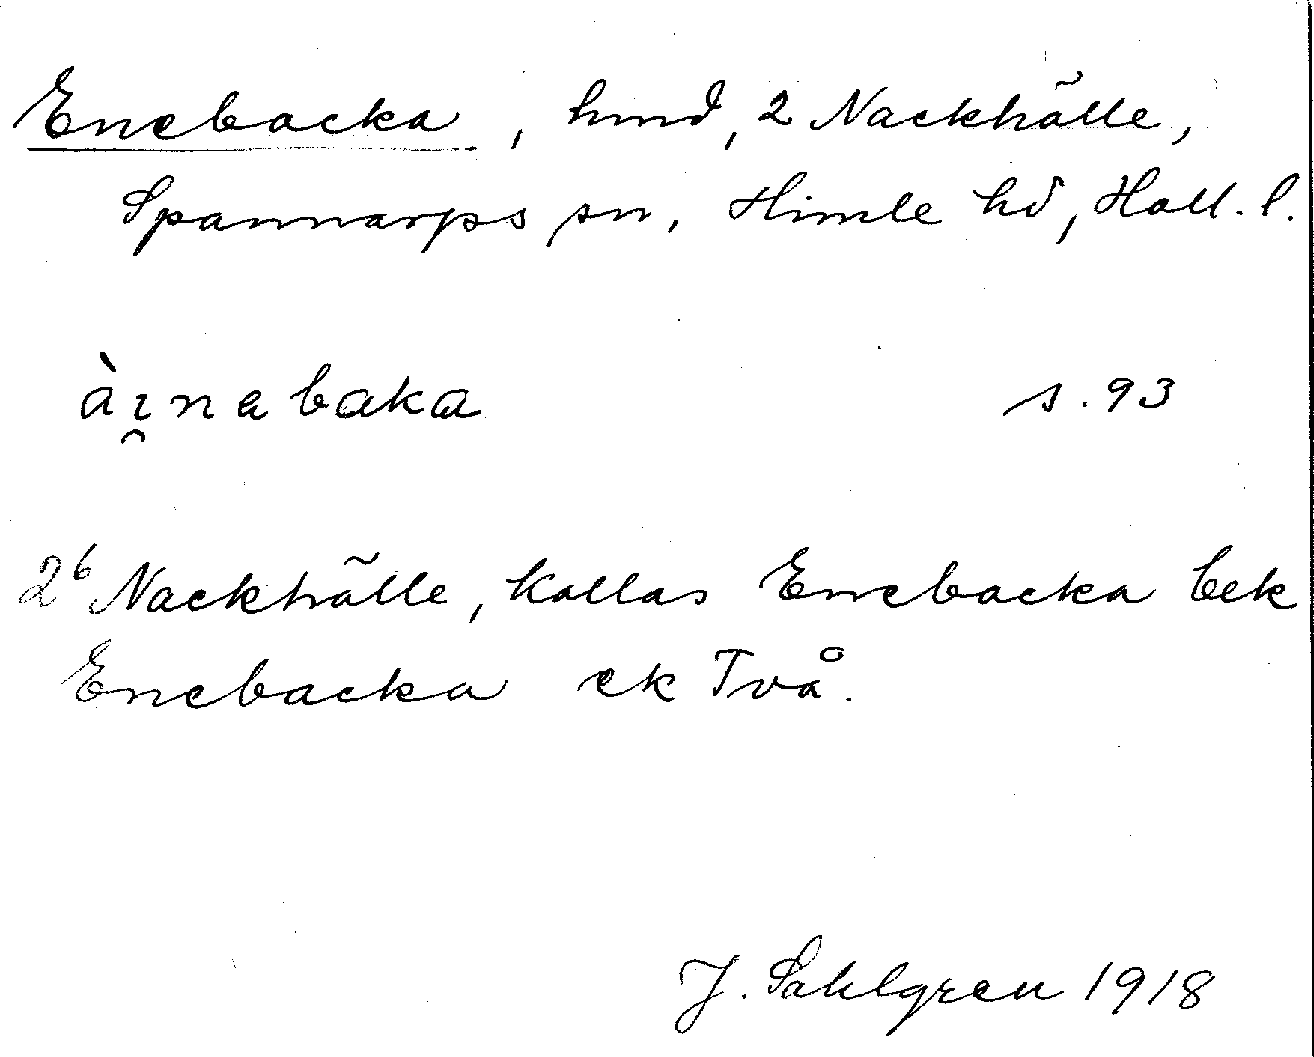 Enebacka, hmd, 2 Nackhälle,
Spannarps sn, Himle hd, Hall. l.
àı̯nabaka s. 93
2⁶ Nackhälle, kallas Enebacka bek
Enebacka ek Två.
J. Sahlgren 1918